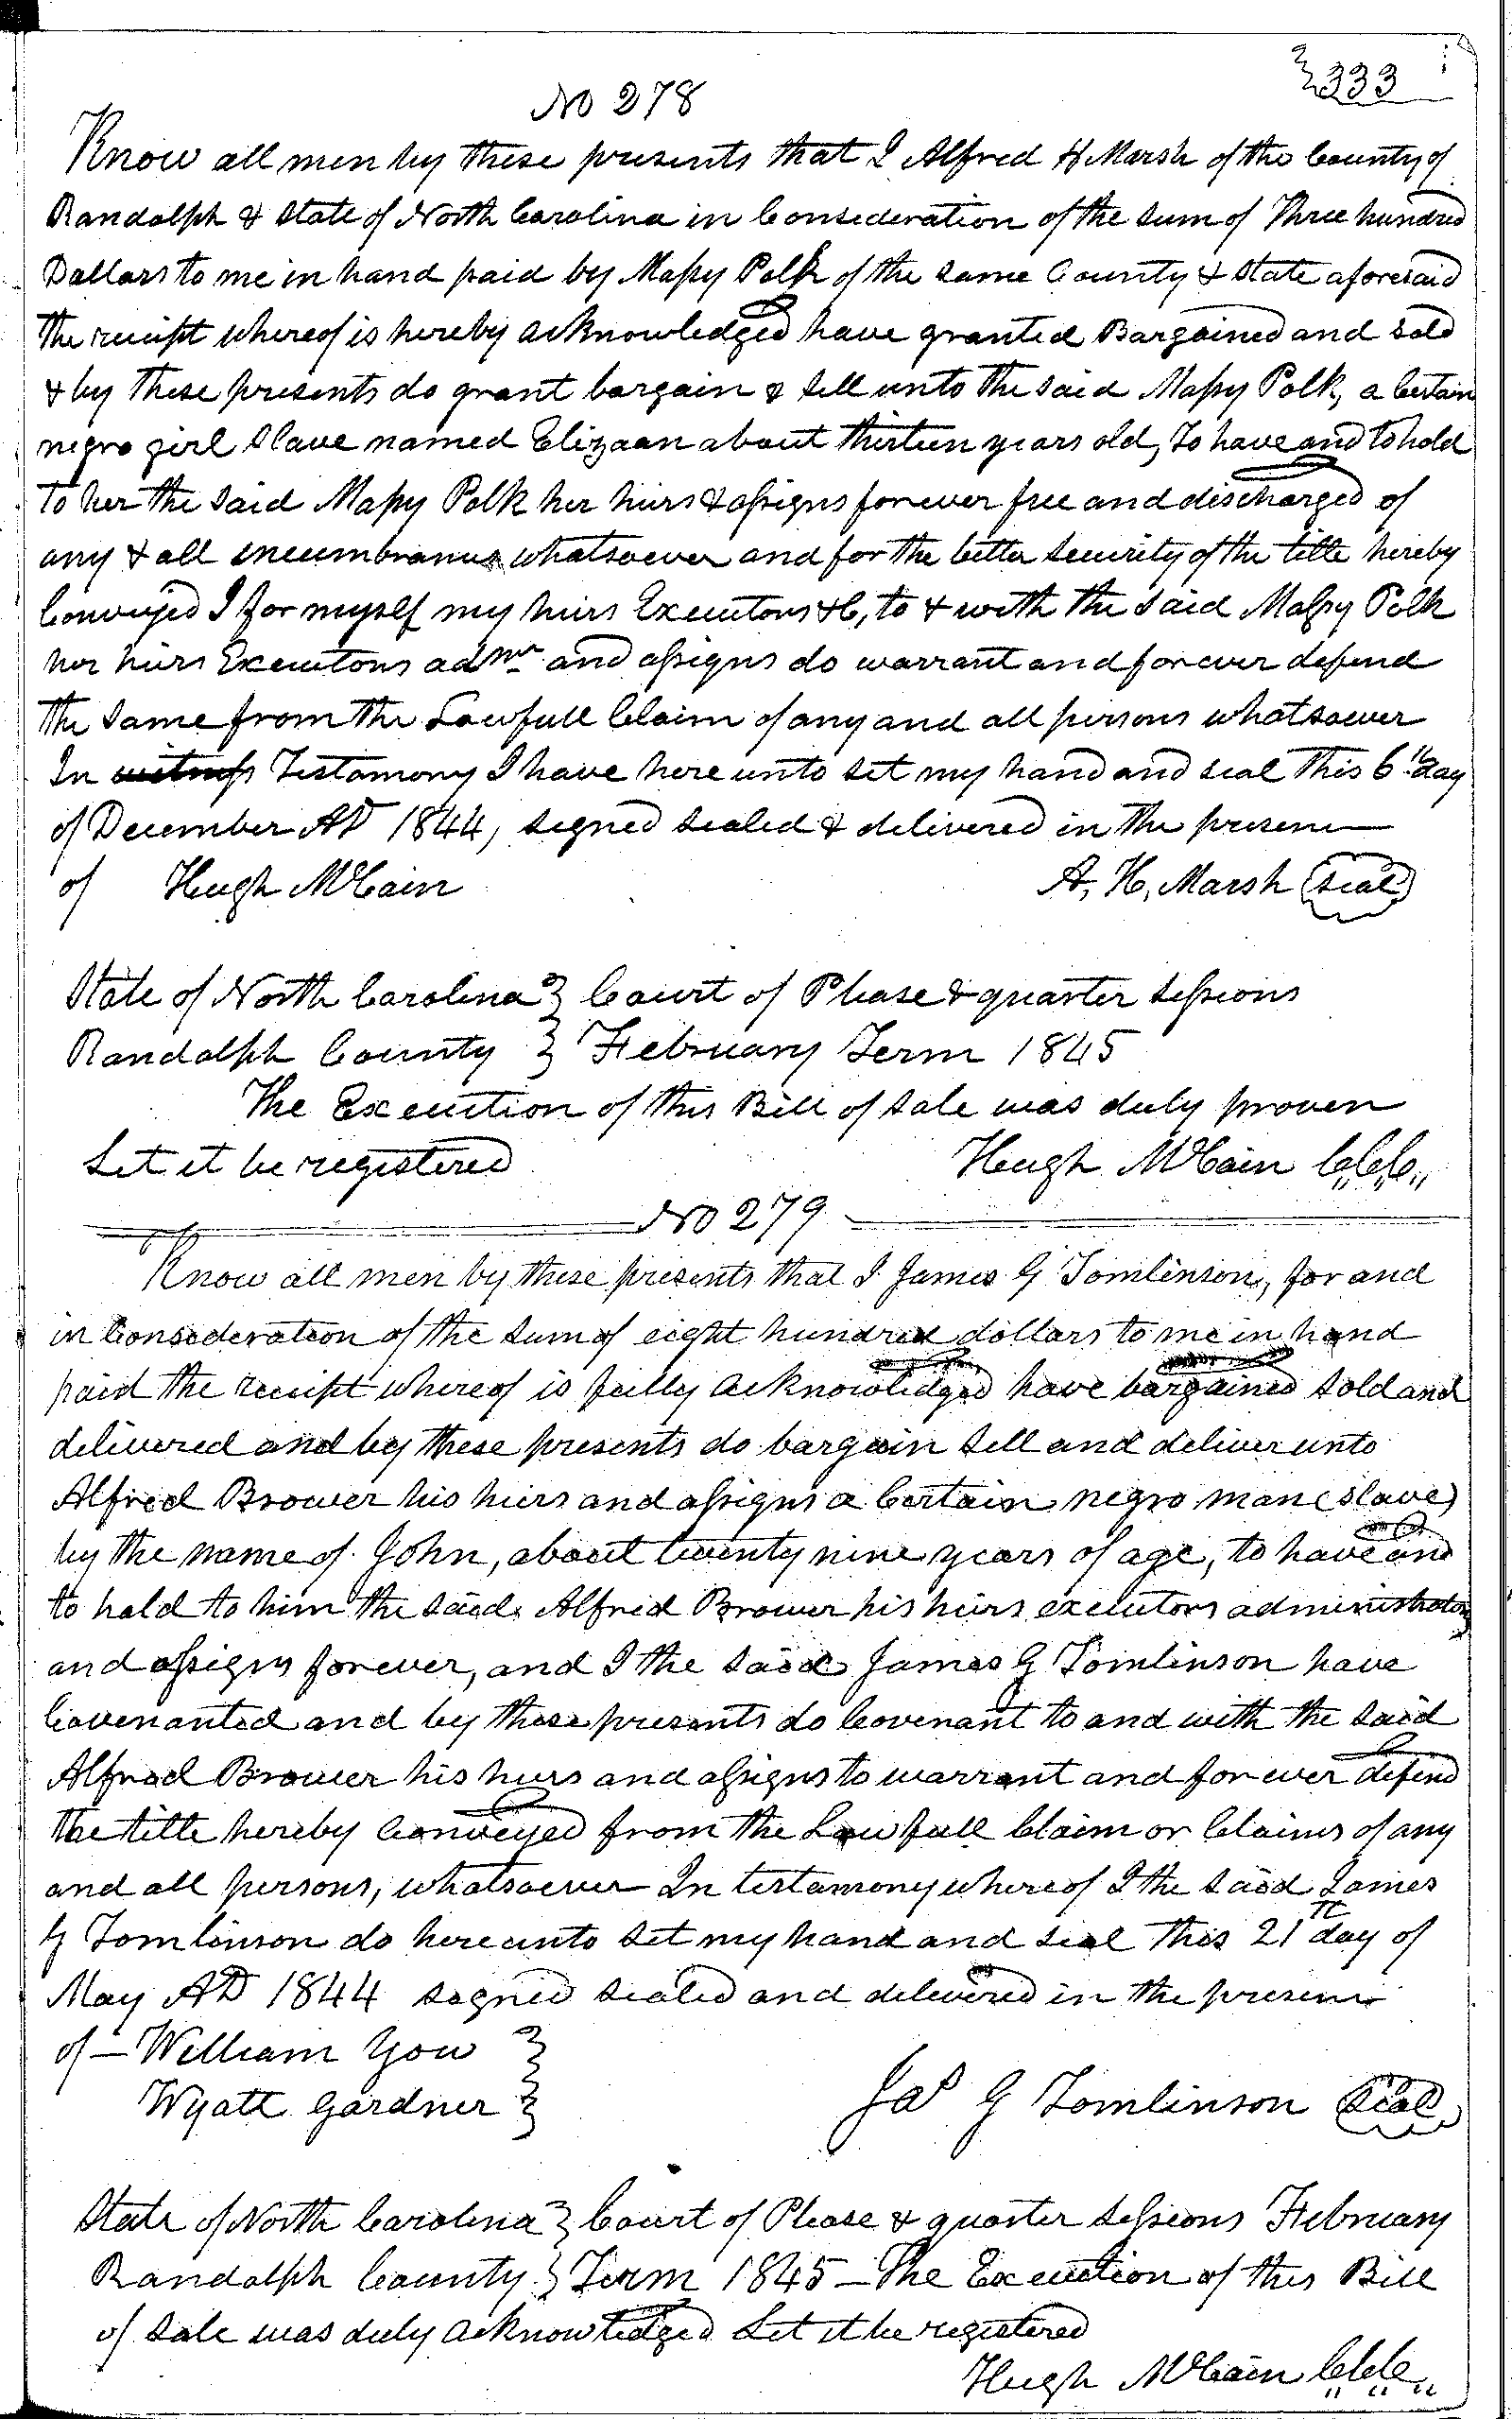 333
No 278
Know all men by these presents that I Alfred H Marsh of the County of
Randolph & State of North Carolina in Consideration of the sum of Three hundred
Dollars to me in hand paid by Massy Polk of the same County & State aforesaid
the receipt whereof is hereby acknowledged have granted Bargained and sold
& by these presents do grant bargain & sell unto the said Massy Polk, a Certain
negro girl slave named Elizaan about thirteen years old, to have and to hold
to her the said Massy Polk her heirs & assigns forever free and discharged of
any & all incumbrances whatsoever and for the better security of the title hereby
Conveyed I for myself my heirs Executors &C, to & with the said Massy Polk
her heirs Executors admrs and assigns do warrant and forever defend
the same from the Lawfull Claim of any and all persons whatsoever
In witness Testamony I have here unto set my hand and seal this 6th day
of December AD 1844, signed sealed & delivered in the presence
of Hugh McCain A, H, Marsh (seal)
State of North Carolina } Court of Please & quarter sessions
Randolph County } February Term 1845
The Execution of this Bill of sale was duly proven
Let it be registered Hugh McCain C,,C,,C,,
No 279
Know all men by these presents that I James G Tomlinson, for and
in Consideration of the sum of eight hundred dollars to me in hand
paid the receipt whereof is fully acknowledged have bargained sold and
delivered and by these presents do bargain sell and deliver unto
Alfred Brower his heirs and assigns a Certain negro man (slave)
by the name of John, about twenty nine years of age, to have and
to hold to him the said Alfred Brower his heirs executors administrators
and assigns forever, and I the said James G Tomlinson have
Covenanted and by these presents do Covenant to and with the said
Alfred Brower his heirs and assigns to warrant and forever defend
the title hereby Conveyed from the Lawfull Claim or Claims of any
and all persons, whatsoever In testamony whereof I the said James
G Tomlinson do here unto set my hand and seal this 21st day of
May AD 1844 signed sealed and delivered in the presence
of — William Gow }
Wyatt Gardner }
Jas G Tomlinson (seal)
State of North Carolina } Court of Please & quarter sessions February
Randolph County } Term 1845 — The Execution of this Bill
of sale was duly acknowledged Let it be registered
Hugh McCain C,,C,,C,,